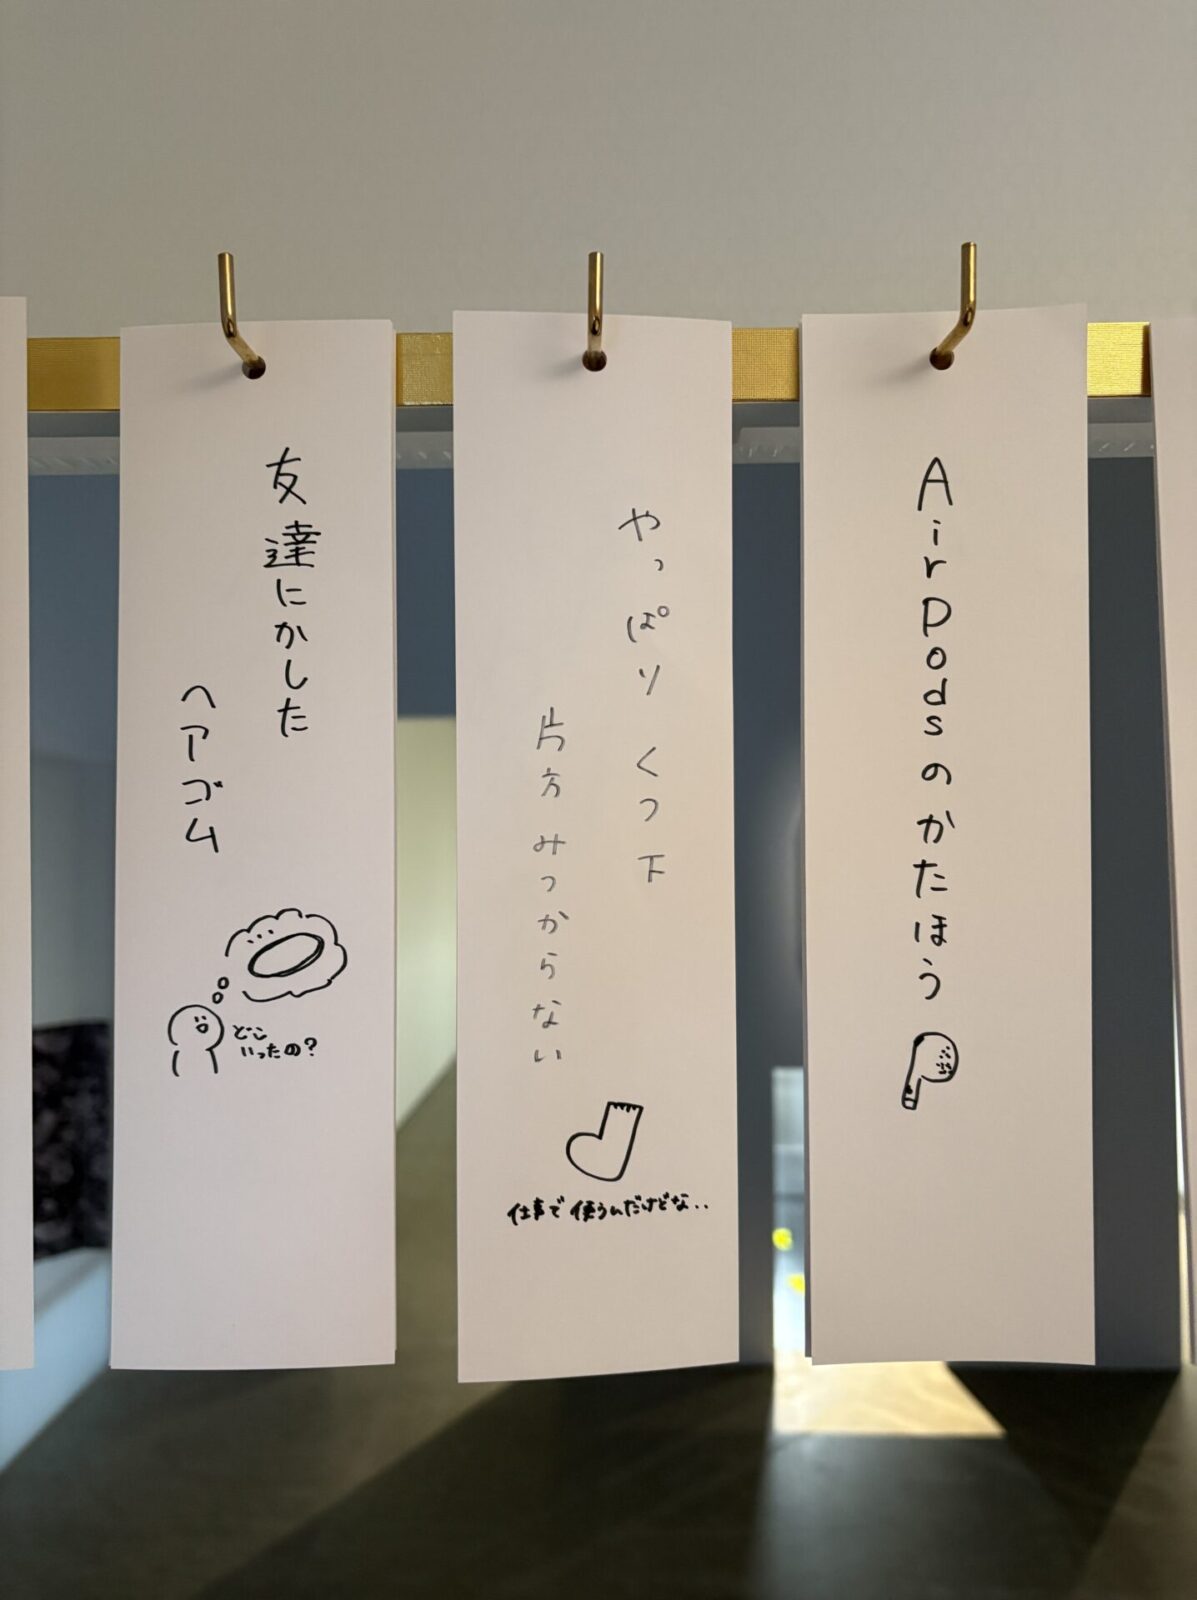 友達にかした
ヘアゴム
どこ
いったの?
やっぱりくつ下
片方みつからない
仕事で使うんだけどな..
AirPodsのかたほう